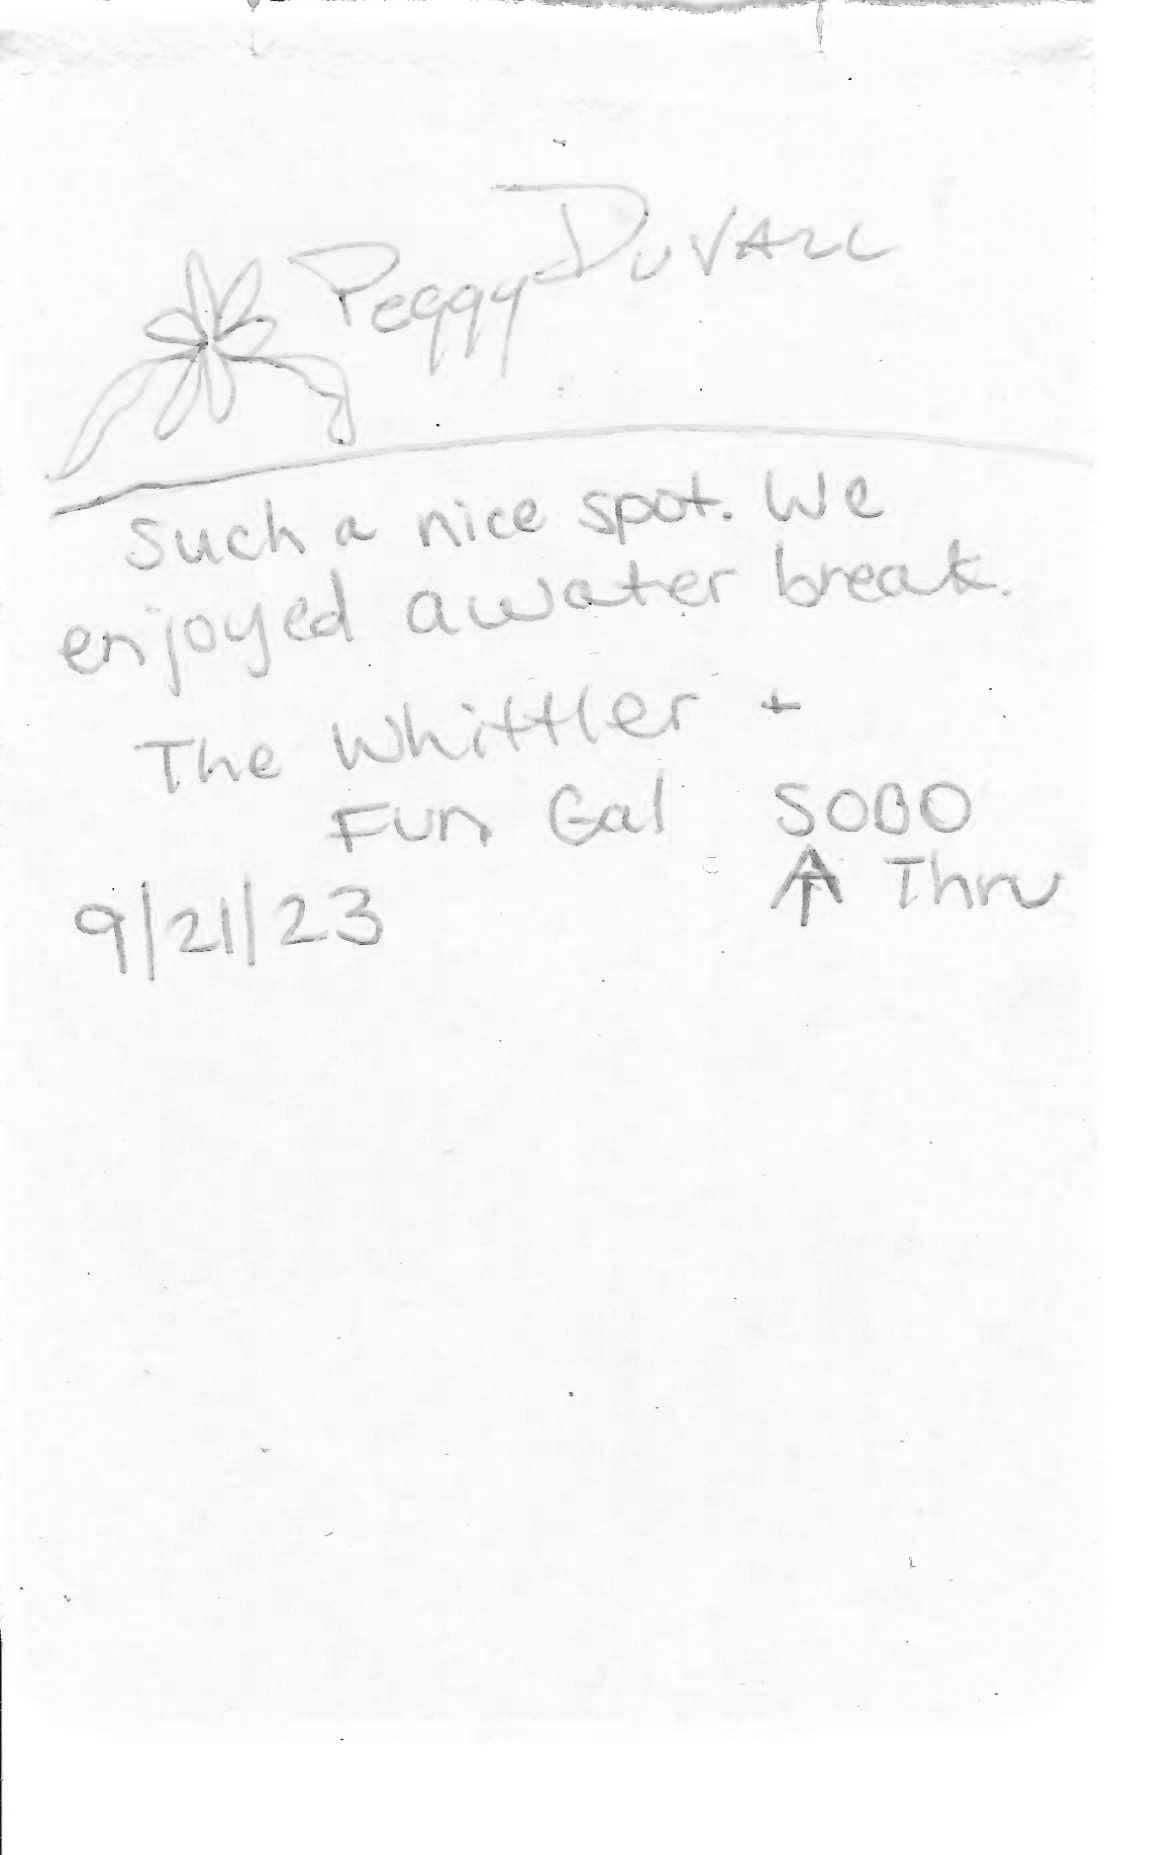 Peggy DuVall
Such a nice spot. We
enjoyed a water break.
The Whittler +
Fun Gal SOBO
Thru
9/21/23